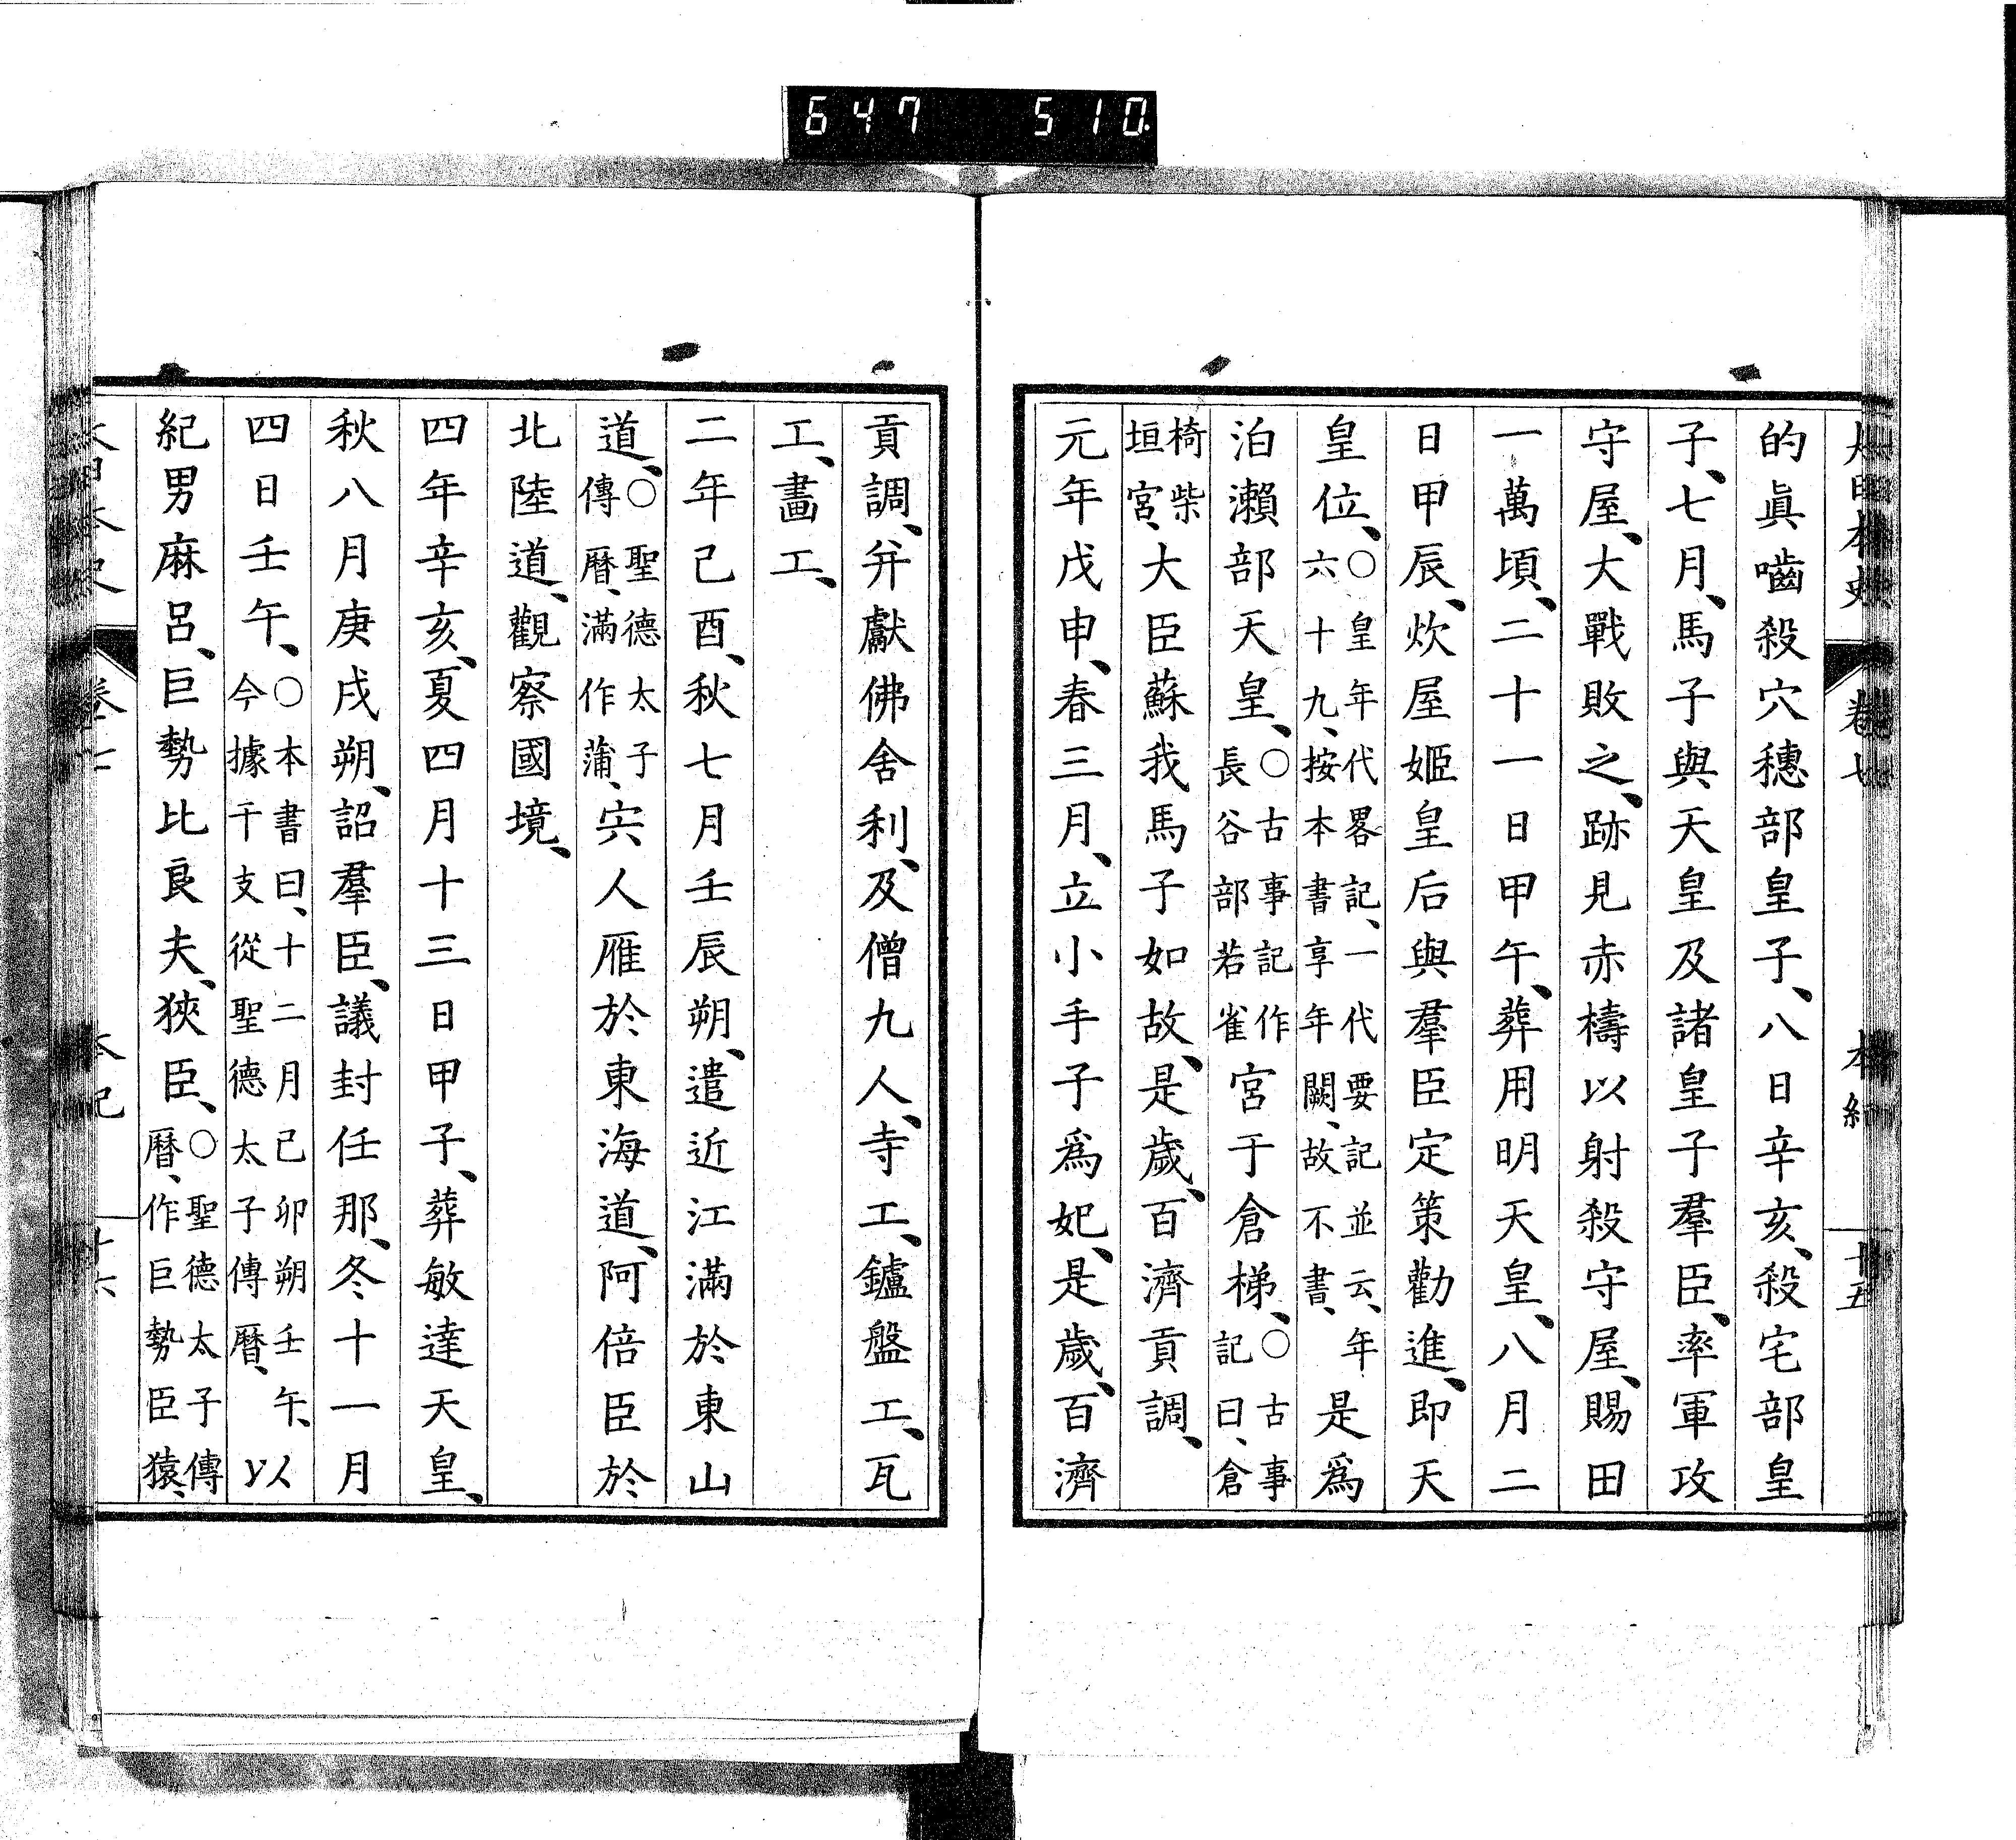 647 510
大日本史 卷七 本紀 十五
的眞嚙殺穴穗部皇子、八日辛亥、殺宅部皇
子、七月、馬子與天皇及諸皇子羣臣、率軍攻
守屋、大戰敗之、跡見赤檮以射殺守屋、賜田
一萬頃、二十一日甲午、葬用明天皇、八月二
日甲辰、炊屋姬皇后與羣臣定策勸進、即天
皇位、○皇年代畧記、一代要記並云、年六十九、按本書享年闕、故不書、是爲
泊瀨部天皇、○古事記作長谷部若雀宮于倉梯、○古事記曰、倉
椅柴垣宮、大臣蘇我馬子如故、是歲、百濟貢調、
元年戊申、春三月、立小手子爲妃、是歲、百濟
貢調、幷獻佛舍利、及僧九人、寺工、鑪盤工、瓦
工、畫工、
二年己酉、秋七月壬辰朔、遣近江滿於東山
道、○聖德太子傳曆、滿作蒲、宍人雁於東海道、阿倍臣於
北陸道、觀察國境、
四年辛亥、夏四月十三日甲子、葬敏達天皇、
秋八月庚戌朔、詔羣臣、議封任那、冬十一月
四日壬午、○本書曰、十二月己卯朔壬午、今據干支從聖德太子傳曆、以
紀男麻呂、巨勢比良夫、狹臣、○聖德太子傳曆、作巨勢臣猿、
大日本史 卷七 本紀 十六